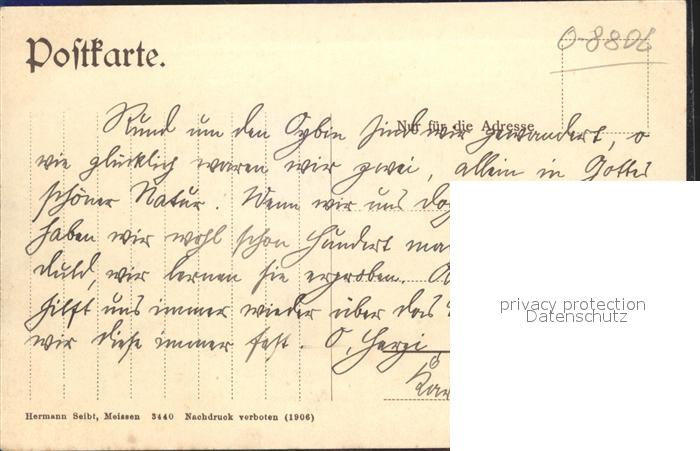 Postkarte.
0-8806
Nur für die Adresse
Rund um den Oybin sind wir gewandert, o
wie glücklich waren wir zwei, allein in Gottes
schöner Natur. Wenn wir uns doch
haben wir wohl schon hundert mal
duld, wir lernen sie erproben.
hilft uns immer wieder über das
wir diese immer fest. O, Herzi
privacy protection
Datenschutz
Hermann Seibt, Meissen 3440 Nachdruck verboten (1906)